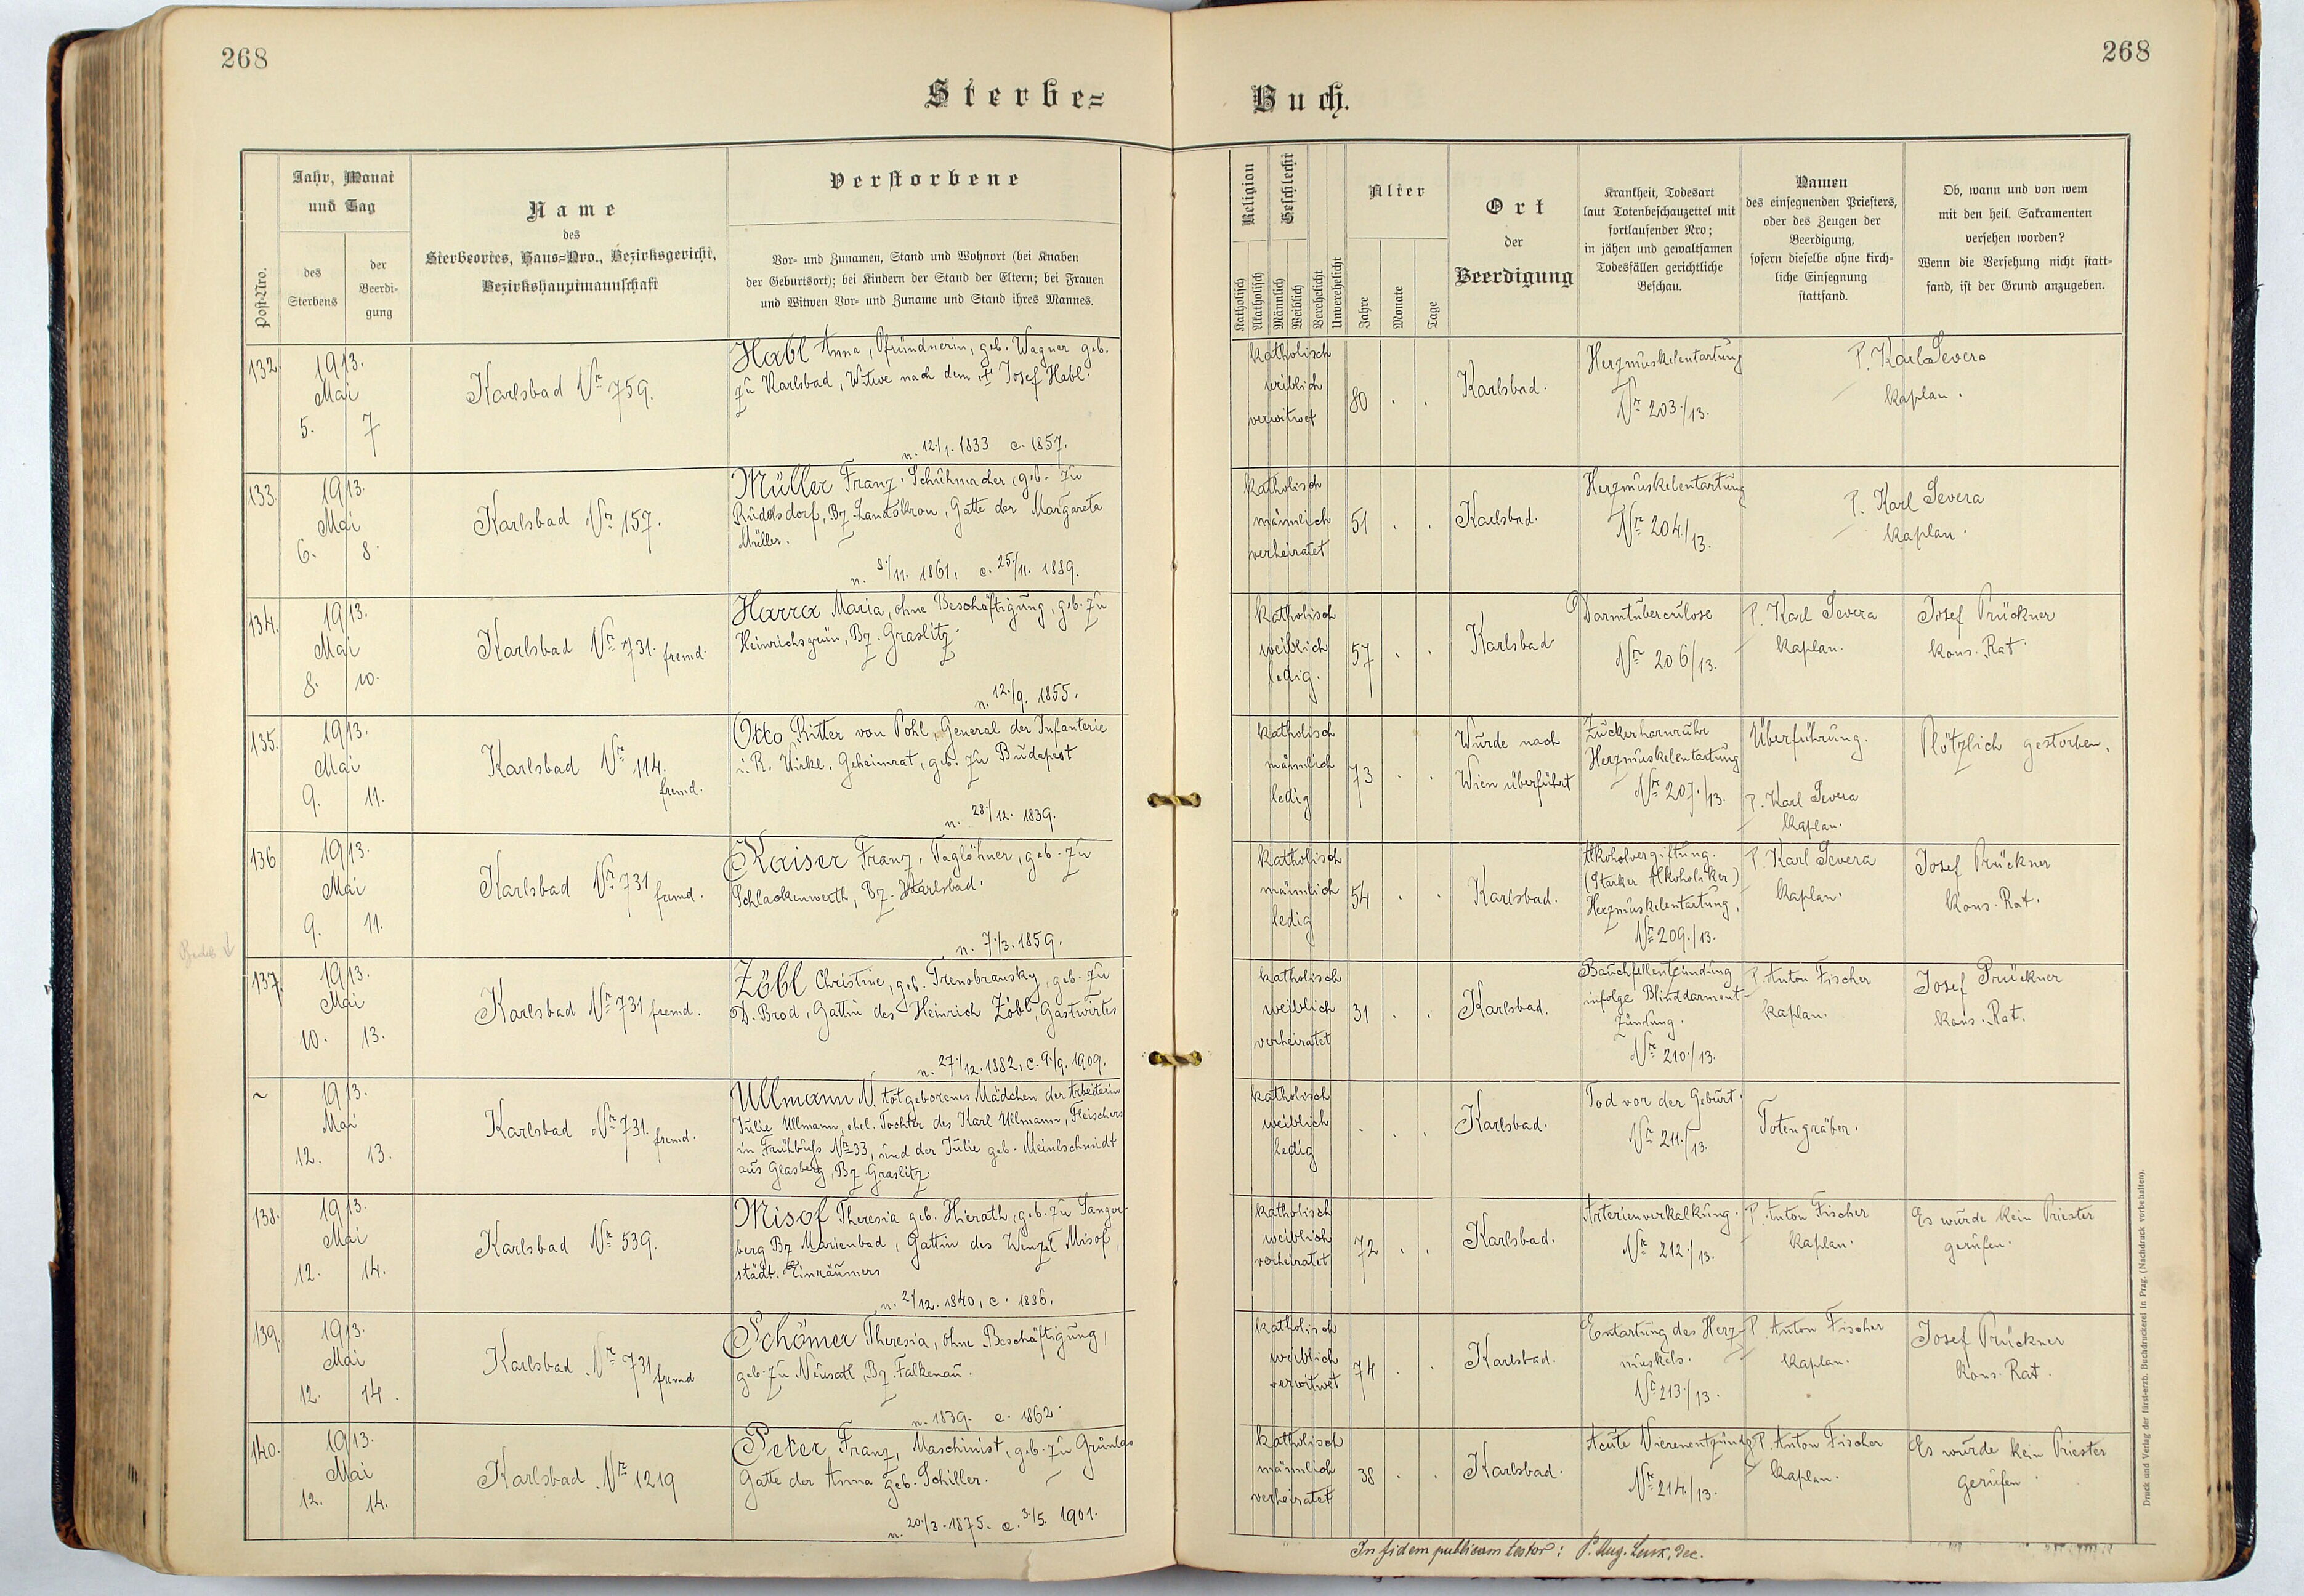 268
268
Sterbe=
Buch.
Post-Nro.
Jahr, Monat
und Tag
des
Sterbens
der
Beerdi-
gung
Name
des
Sterbeortes, Haus=Nro., Bezirksgericht,
Bezirkshauptmannschaft
Verstorbene
Vor- und Zunamen, Stand und Wohnort (bei Knaben
der Geburtsort); bei Kindern der Stand der Eltern; bei Frauen
und Witwen Vor- und Zuname und Stand ihres Mannes.
Religion
Katholisch
Akatholisch
Geschlecht
Männlich
Weiblich
Verehelicht
Unverehelicht
Alter
Jahre
Monate
Tage
Ort
der
Beerdigung
Krankheit, Todesart
laut Totenbeschauzettel mit
fortlaufender Nro;
in jähen und gewaltsamen
Todesfällen gerichtliche
Beschau.
Namen
des einsegnenden Priesters,
oder des Zeugen der
Beerdigung,
sofern dieselbe ohne kirch-
liche Einsegnung
stattfand.
Ob, wann und von wem
mit den heil. Sakramenten
versehen worden?
Wenn die Versehung nicht statt-
fand, ist der Grund anzugeben.
132.
1913.
Mai
5. 7
Karlsbad Nr 759.
Habl Anna, Pfründnerin, geb. Wagner geb.
zu Karlsbad, Witwe nach dem † Josef Habl.
n. 12./1. 1833 c. 1857.
katholisch
weiblich
verwitwet
80 . .
Karlsbad.
Herzmuskelentartung
Nr 203./13.
P. Karl Severa
Kaplan.
133.
1913.
Mai
6. 8.
Karlsbad Nr 157.
Müller Franz. Schuhmacher, geb. zu
Rudolsdorf, Bz. Landskron, Gatte der Margareta
Müller.
n. 8./11. 1861, c. 25./11. 1889.
katholisch
männlich
verheiratet
51 . .
Karlsbad.
Herzmuskelentartung
Nr 204./13.
P. Karl Severa
Kaplan.
134.
1913.
Mai
8. 10.
Karlsbad Nr 731. fremd.
Harra Maria, ohne Beschäftigung, geb. zu
Heinrichsgrün, Bz. Graslitz.
n. 12./9. 1855.
katholisch
weiblich
ledig.
57 . .
Karlsbad
Darmtuberculose
Nr 206/13.
P. Karl Severa
Kaplan.
Josef Prückner
kons. Rat.
135.
1913.
Mai
9. 11.
Karlsbad Nr 114.
fremd.
Otto Ritter von Pohl, General der Infanterie
i. R. Wirkl. Geheimrat, geb. zu Budapest
n. 28./12. 1839.
katholisch
männlich
ledig
73 . .
Wurde nach
Wien überführt
Zuckerharnruhr
Herzmuskelentartung
Nr 207./13.
Überführung.
P. Karl Severa
Kaplan.
Plötzlich gestorben.
136
1913.
Mai
9. 11.
Karlsbad Nr 731 fremd.
Kaiser Franz, Taglöhner, geb. zu
Schlackenwerth, Bz. Karlsbad.
n. 7./3. 1859.
katholisch
männlich
ledig
54 . .
Karlsbad.
Alkoholvergiftung.
(Starker Alkoholiker)
Herzmuskelentartung,
Nr 209./13.
P. Karl Severa
Kaplan.
Josef Prückner
Kons. Rat.
137.
1913.
Mai
10. 13.
Karlsbad Nr 731 fremd.
Zöbl Christine, geb. Trenobransky, geb. zu
D. Brod, Gattin des Heinrich Zöbl, Gastwirtes
n. 27./12. 1882, c. 9./9. 1909.
katholisch
weiblich
verheiratet
31 . .
Karlsbad.
Bauchfellentzündung
infolge Blinddarment-
zündung.
Nr 210./13.
P. Anton Fischer
Kaplan.
Josef Prückner
kons. Rat.
~
1913.
Mai
12. 13.
Karlsbad Nr 731. fremd.
Ullmann N. totgeborenes Mädchen der Arbeiterin
Julie Ullmann, ehel. Tochter des Karl Ullmann, Fleischers
in Frühbuß Nr 33, und der Julie geb. Meinlschmidt
aus Glasberg, Bz. Graslitz
katholisch
weiblich
ledig
. . .
Karlsbad.
Tod vor der Geburt.
Nr 211./13.
Totengräber.
138.
1913.
Mai
12. 14.
Karlsbad Nr 539.
Misof Theresia geb. Hierath, geb. zu Sanger-
berg Bz Marienbad, Gattin des Wenzel Misof,
städt. Einräumers
n. 2/12. 1840, c. 1886.
katholisch
weiblich
verheiratet
72 . .
Karlsbad.
Arterienverkalkung.
Nr 212./13.
P. Anton Fischer
Kaplan.
Es wurde kein Priester
gerufen.
139.
1913.
Mai
12. 14.
Karlsbad. Nr 731 fremd
Schömer Theresia, ohne Beschäftigung,
geb. zu Neusatl, Bz. Falkenau.
n. 1839. c. 1862.
katholisch
weiblich
verwitwet
74 . .
Karlsbad.
Entartung des Herz-
muskels.
Nr 213./13.
P. Anton Fischer
Kaplan.
Josef Prückner
Kons. Rat.
140.
1913.
Mai
12. 14.
Karlsbad. Nr 1219
Peter Franz, Maschinist, geb. zu Grünlas
Gatte der Anna geb. Schiller.
n. 20./3. 1875. c. 3./5. 1901.
katholisch
männlich
verheiratet
38 . .
Karlsbad.
Acute Nierenentzündg
Nr 214./13.
P. Anton Fischer
Kaplan.
Es wurde kein Priester
gerufen.
In fidem publicam testor: P. Aug. Dec.
Druck und Verlag der fürst-erzb. Buchdruckerei in Prag. (Nachdruck vorbehalten).